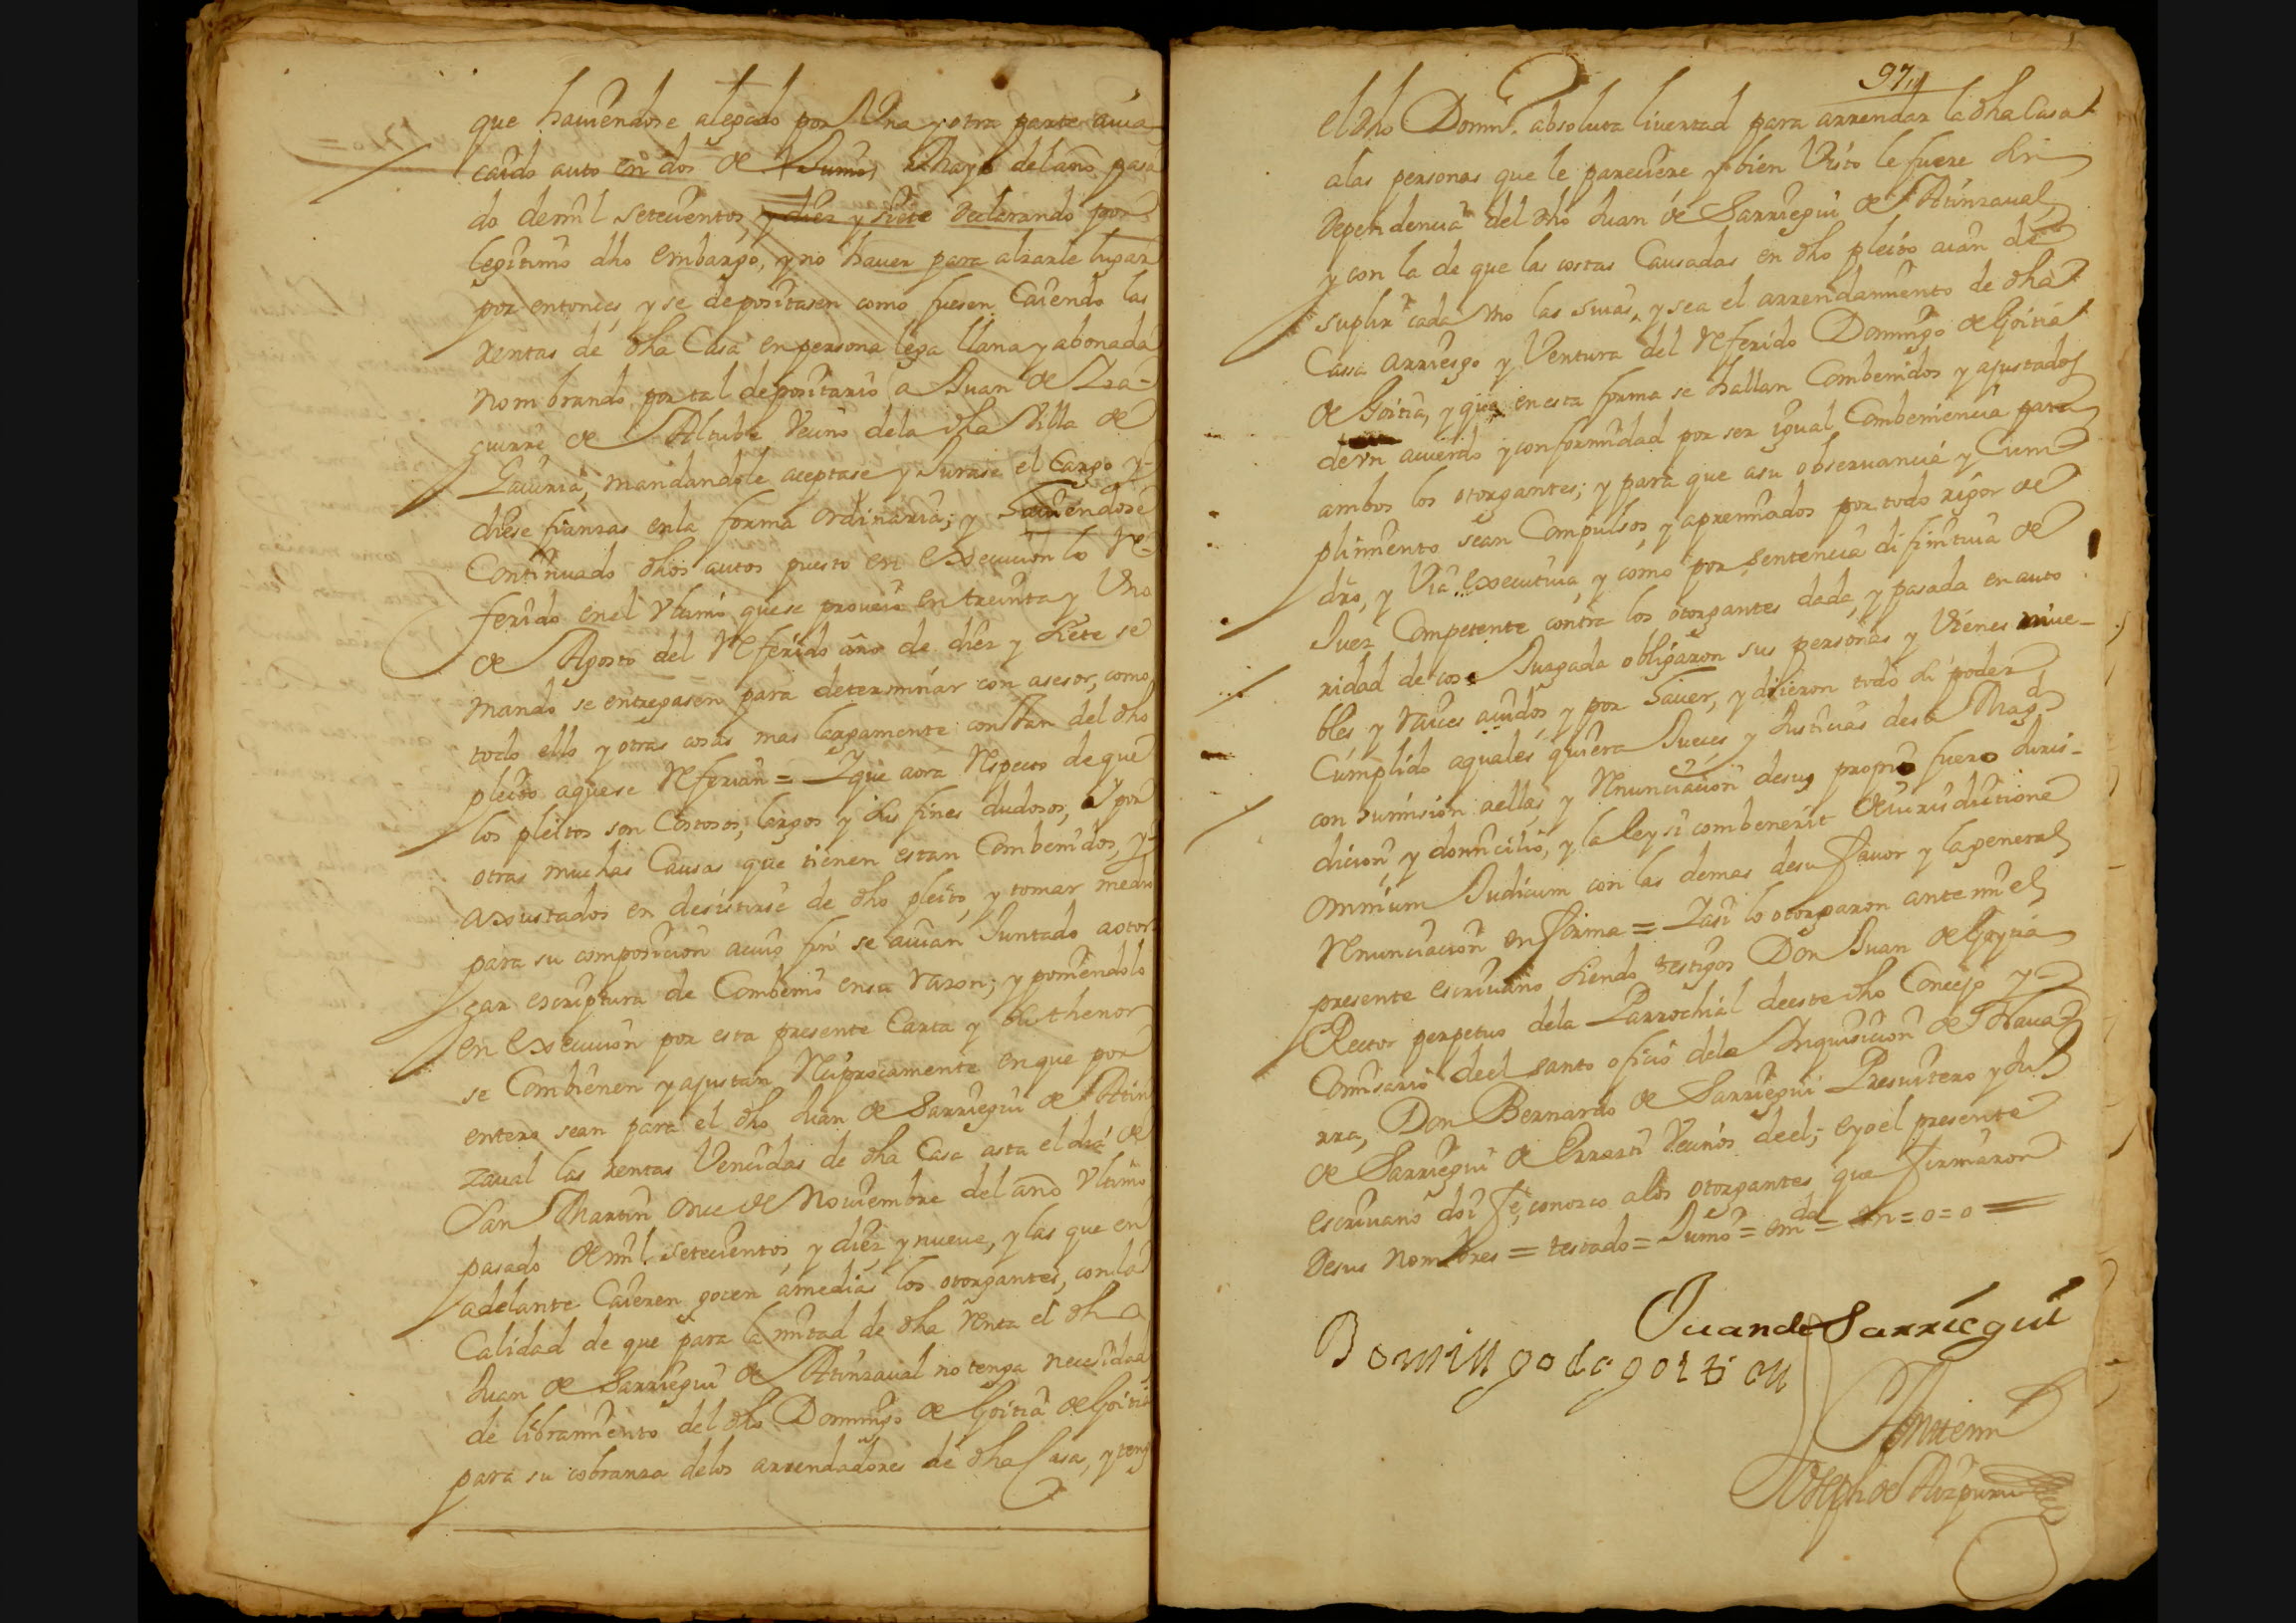 que haviendose alegado por Una y otra parte avia
caido auto en dos de Junio, Mayo del año pasa
do de mil setecientos, y diez y siete declarando por
legitimo dho embargo, y no haver para alzarle lugar
por entonces, y se depositasen como fuesen Caiendo las
rentas de dha Casa en persona lega llana y abonada
nombrando por tal depositario a Juan de Iza-
guirre de Altube Vecino dela dha Villa de
Gaviria, mandandole aceptase y Jurase el Cargo y
diese fianzas en la forma ordinaria; y haviendose
Continuado dhos autos puesto en execucion lo Re-
ferido en el Vltimo que se proveio en treinta y Uno
de Agosto del Referido año de diez y siete se
mando se entregasen para determinar con asesor, como
todo ello y otras cosas mas largamente constan del dho
pleito aque se Referian = Y que aora Respecto de que
los pleitos son Costosos, largos y sus fines dudosos, y por
otras muchas Causas que tienen estan Combenidos, y
axustados en desistirse de dho pleito, y tomar medio
para su composicion acuio fin se avian Juntado a otor
gar escriptura de Combenio en su razon; y poniendolo
en execucion por esta presente Carta y su thenor
se Combienen y ajustan Reciprocamente en que por
entero sean para el dho Juan de Sarriegui de Atin
zaval las rentas Vencidas de dha Casa asta el dia de
San Martin once de Noviembre del año Vltimo
pasado de mil setecientos, y diez y nueve, y las que en
adelante Caieren gocen amedias los otorgantes, con la
Calidad de que para la mitad de dha renta el dho
Juan de Sarriegui de Atinzaval no tenga necesidad
de libramiento del dho Domingo de Goitia de Goitia
para su cobranza delos arrendadores de dha Casa, y teng
97
el dho Domin.º absoluta livertad para arrendar la dha Casa
alas personas que le pareciere y bien Visto le fuere sin
dependencia del dho Juan de Sarriegui de Atinzaval,
y con la de que las costas Causadas en dho pleito aian de
suplir cada Uno las suias, y sea el arrendamiento de dha
Cassa arriesgo y Ventura del Referido Domingo de Goitia
de Goitia, y que en esta forma se hallan Combenidos y ajustados
de vn acuerdo y conformidad por ser igual Combeniencia para
ambos los otorgantes; y para que asu observancia y Cum
plimiento sean Compulsos, y apremiados por todo rigor de
dro, y Via executiva, y como por sentencia difinitiva de
Juez Competente contra los otorgantes dada, y pasada en auto
ridad de cosa Juzgada obligaron sus personas y Vienes mue-
bles y raices avidos, y por haver, y dieron todo su poder
Cumplido aquales quiera Jueces, y Justicias de su Magd
con sumision aellas, y Renunciacion de su propio fuero Juris-
dicion, y domicilio, y la ley si combenerit de iurisdictione
omnium Judicum con las demas de su favor y la general
Renunciacion en forma = Y asi lo otorgaron ante mi el
presente escrivano siendo testigos Don Juan de Goytia
Rector perpetuo dela Parrochial de este dho Concejo y
Comisario de el santo oficio dela Inquisicion de Nava
rra, Don Bernardo de Sarriegui Presvitero y Juº
de Sarriegui de Errasti Vecinos de el; e yo el presente
escrivano doi fe, conozco alos otorgantes que firmaron
de sus nombres = testado = Junio = emdo = en = o = o =
Juan de Sarriegui
Domingo de goitia
Ante mi
Joseph de Aizpuru